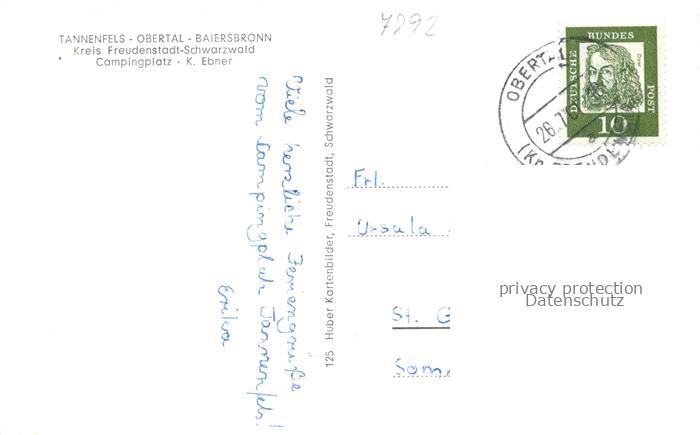 7292
TANNENFELS - OBERTAL - BAIERSBRONN
Kreis Freudenstadt-Schwarzwald
Campingplatz · K. Ebner
Viele herzliche Feriengrüße
vom Campingplatz Tannenfels!
Erika
125 Huber Kartenbilder, Freudenstadt, Schwarzwald
DEUTSCHE BUNDES POST
10
OBERTAL
26.7.6
a
(KR. FREUDEN
Frl.
Ursula
St. G
Som
privacy protection
Datenschutz